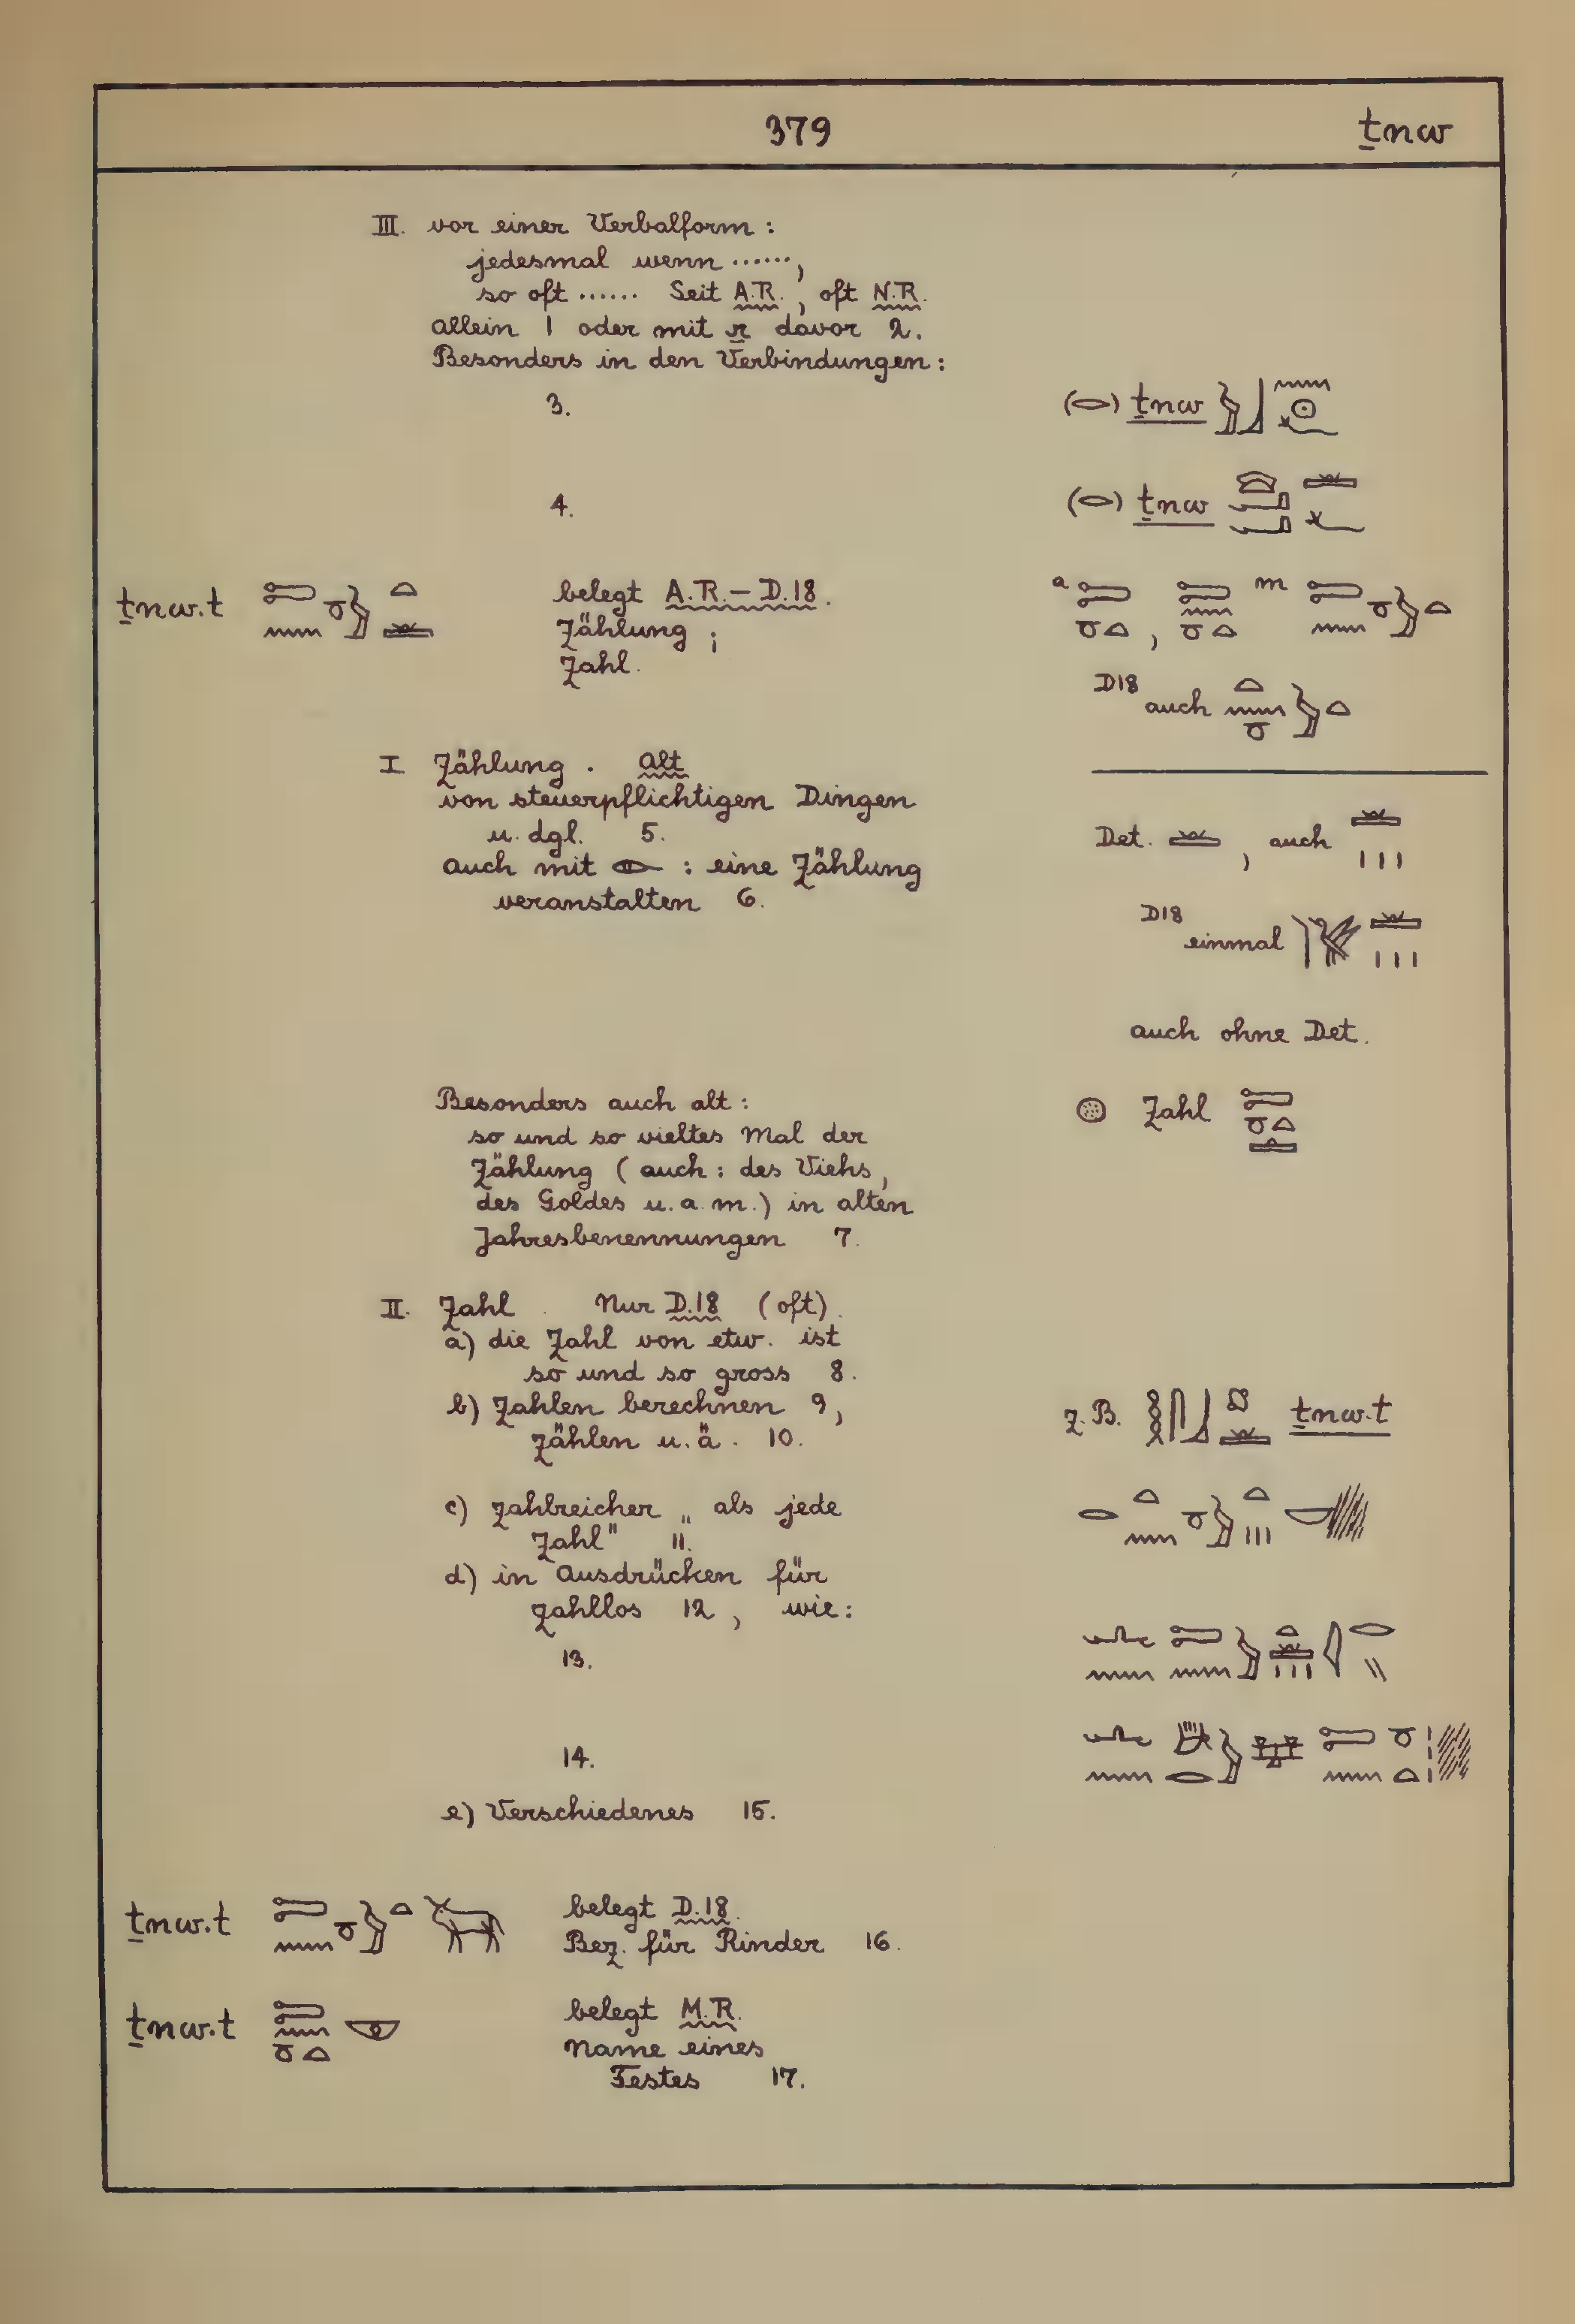 379
ṯnw
III. vor einer Verbalform :
jedesmal wenn ......,
so oft ...... Seit A.R., oft N.R.
allein 1 oder mit r davor 2.
Besonders in den Verbindungen :
3.
( ) ṯnw
4.
( ) ṯnw
ṯnw.t
belegt A.R. – D.18.
Zählung ;
Zahl.
a , m
D18 auch
I Zählung . Alt
von steuerpflichtigen Dingen
u. dgl. 5.
auch mit : eine Zählung
veranstalten 6.
Det. , auch
D18 einmal
auch ohne Det.
Besonders auch alt :
so und so vieltes Mal der
Zählung ( auch : des Viehs,
des Goldes u. a. m. ) in alten
Jahresbenennungen 7.
Zahl
II. Zahl . Nur D.18 (oft).
a) die Zahl von etw. ist
so und so gross 8.
b) Zahlen berechnen 9,
zählen u. ä. 10.
z. B. ṯnw.t
c) zahlreicher „ als jede
Zahl" 11.
d) in Ausdrücken für
zahllos 12, wie :
13.
14.
e) Verschiedenes 15.
ṯnw.t
belegt D.18.
Bez. für Rinder 16.
ṯnw.t
belegt M.R.
Name eines
Festes 17.